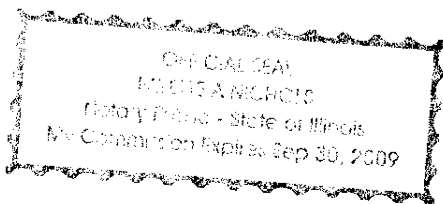 OFFICIAL SEAL
A NICHOLS
Notary Public - State of Illinois
My Commission Expires Sep 30, 2009